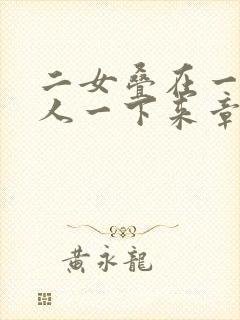 二女叠在一
人一下来章
黄永龍